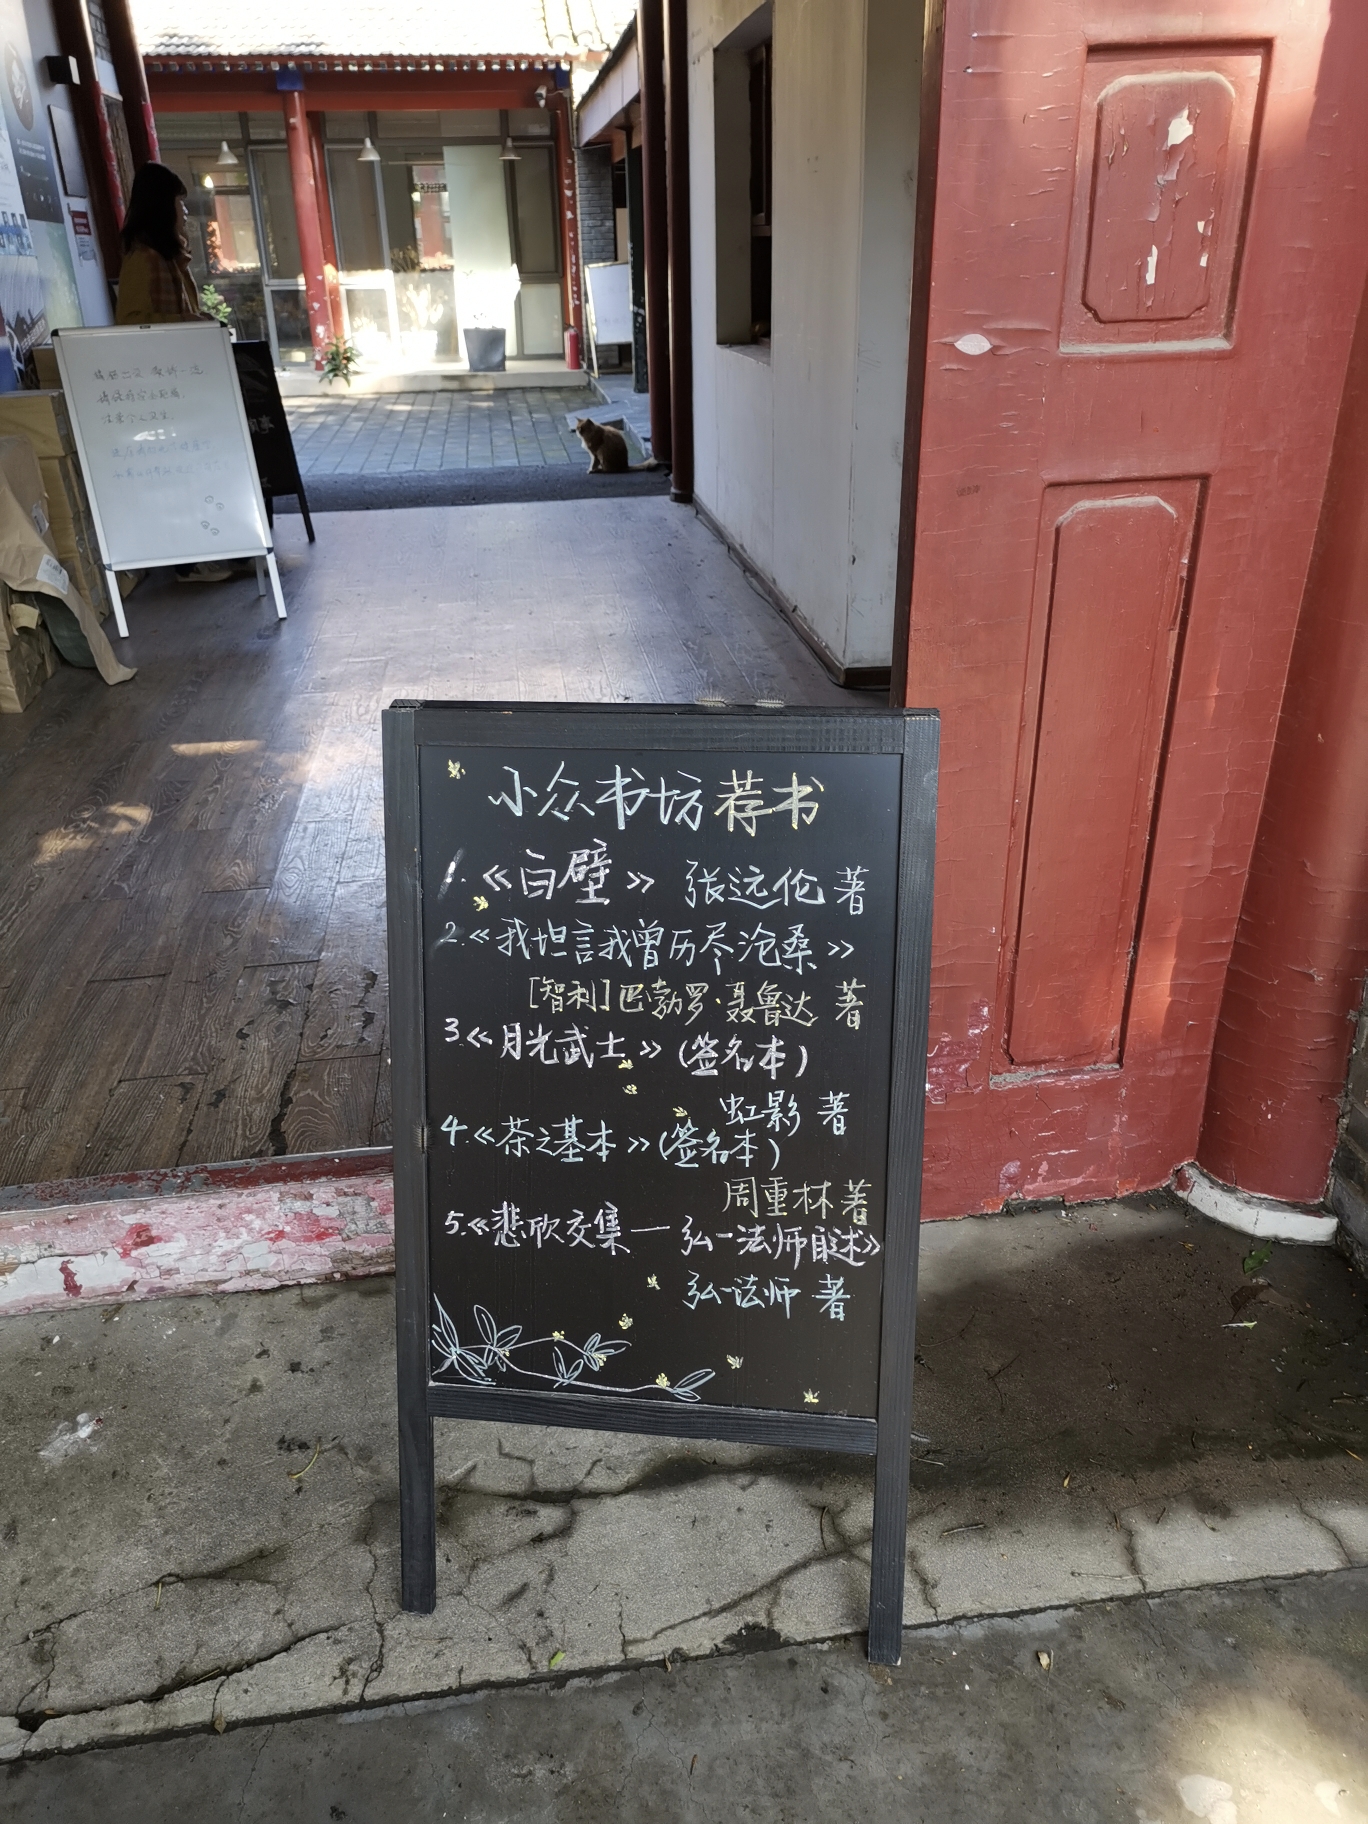 小众书坊荐书
1.《白壁》 张远伦 著
2.《我坦言我曾历尽沧桑》
[智利]巴勃罗·聂鲁达 著
3.《月光武士》(签名本)
虹影 著
4.《茶之基本》(签名本)
周重林 著
5.《悲欣交集—弘一法师自述》
弘一法师 著